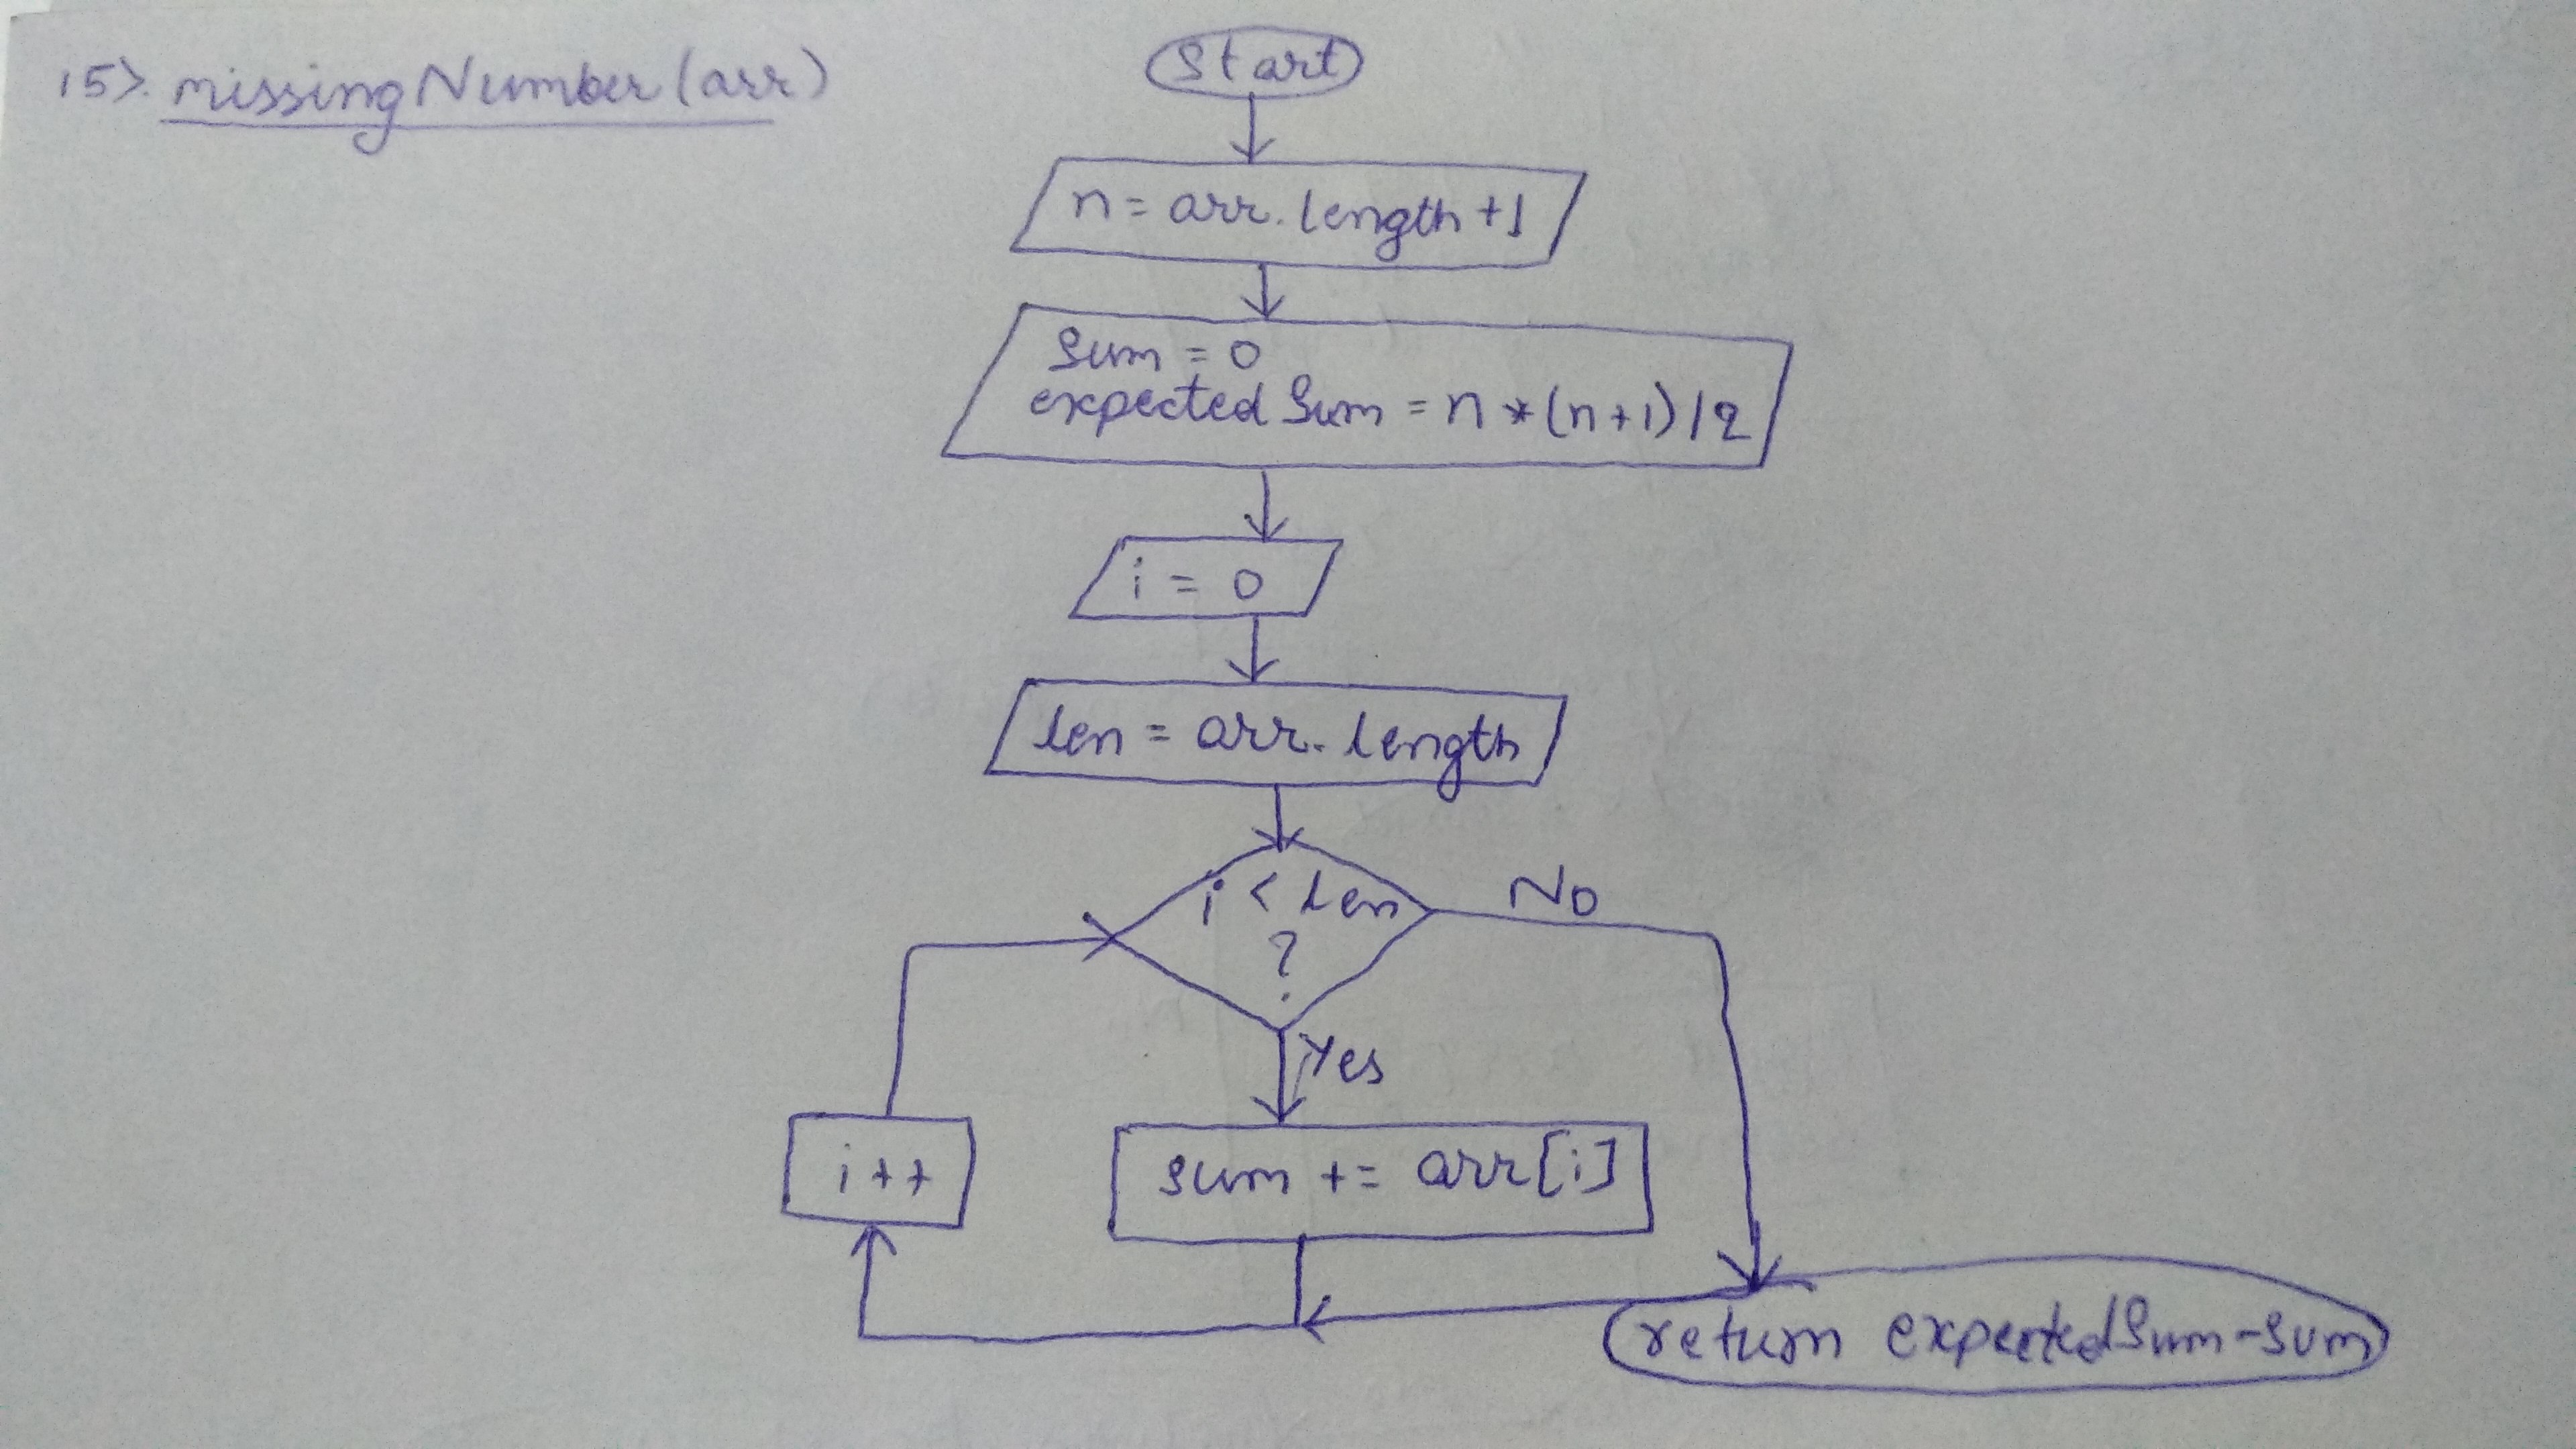 15). missingNumber(arr)
Start
n = arr.length+1
sum = 0
expectedSum = n*(n+1)/2
i = 0
len = arr.length
i < len
?
No
Yes
i++
sum += arr[i]
return expectedSum-sum